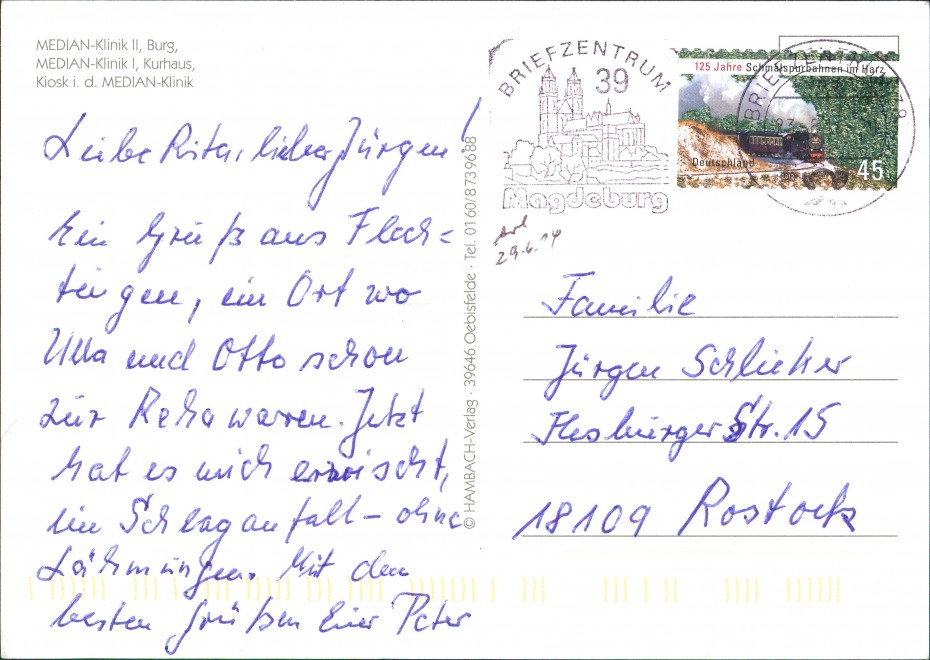 MEDIAN-Klinik II, Burg,
MEDIAN-Klinik I, Kurhaus,
Kiosk i. d. MEDIAN-Klinik
Liebe Rita, lieber Jürgen!
Ein Gruß aus Flech=
tingen, ein Ort wo
Ulla und Otto schon
zur Reha waren. Jetzt
hat es mich erwischt,
ein Schlaganfall – ohne
Lähmungen. Mit den
besten Grüßen Euer Peter
© HAMBACH-Verlag · 39646 Oebisfelde · Tel. 01 60/8 73 96 88
BRIEFZENTRUM
39
Magdeburg
125 Jahre Schmalspurbahnen im Harz
Deutschland
45
BRIEFZENTRUM 39
29.6.14
Familie
Jürgen
Str. 15
18109 Rostock